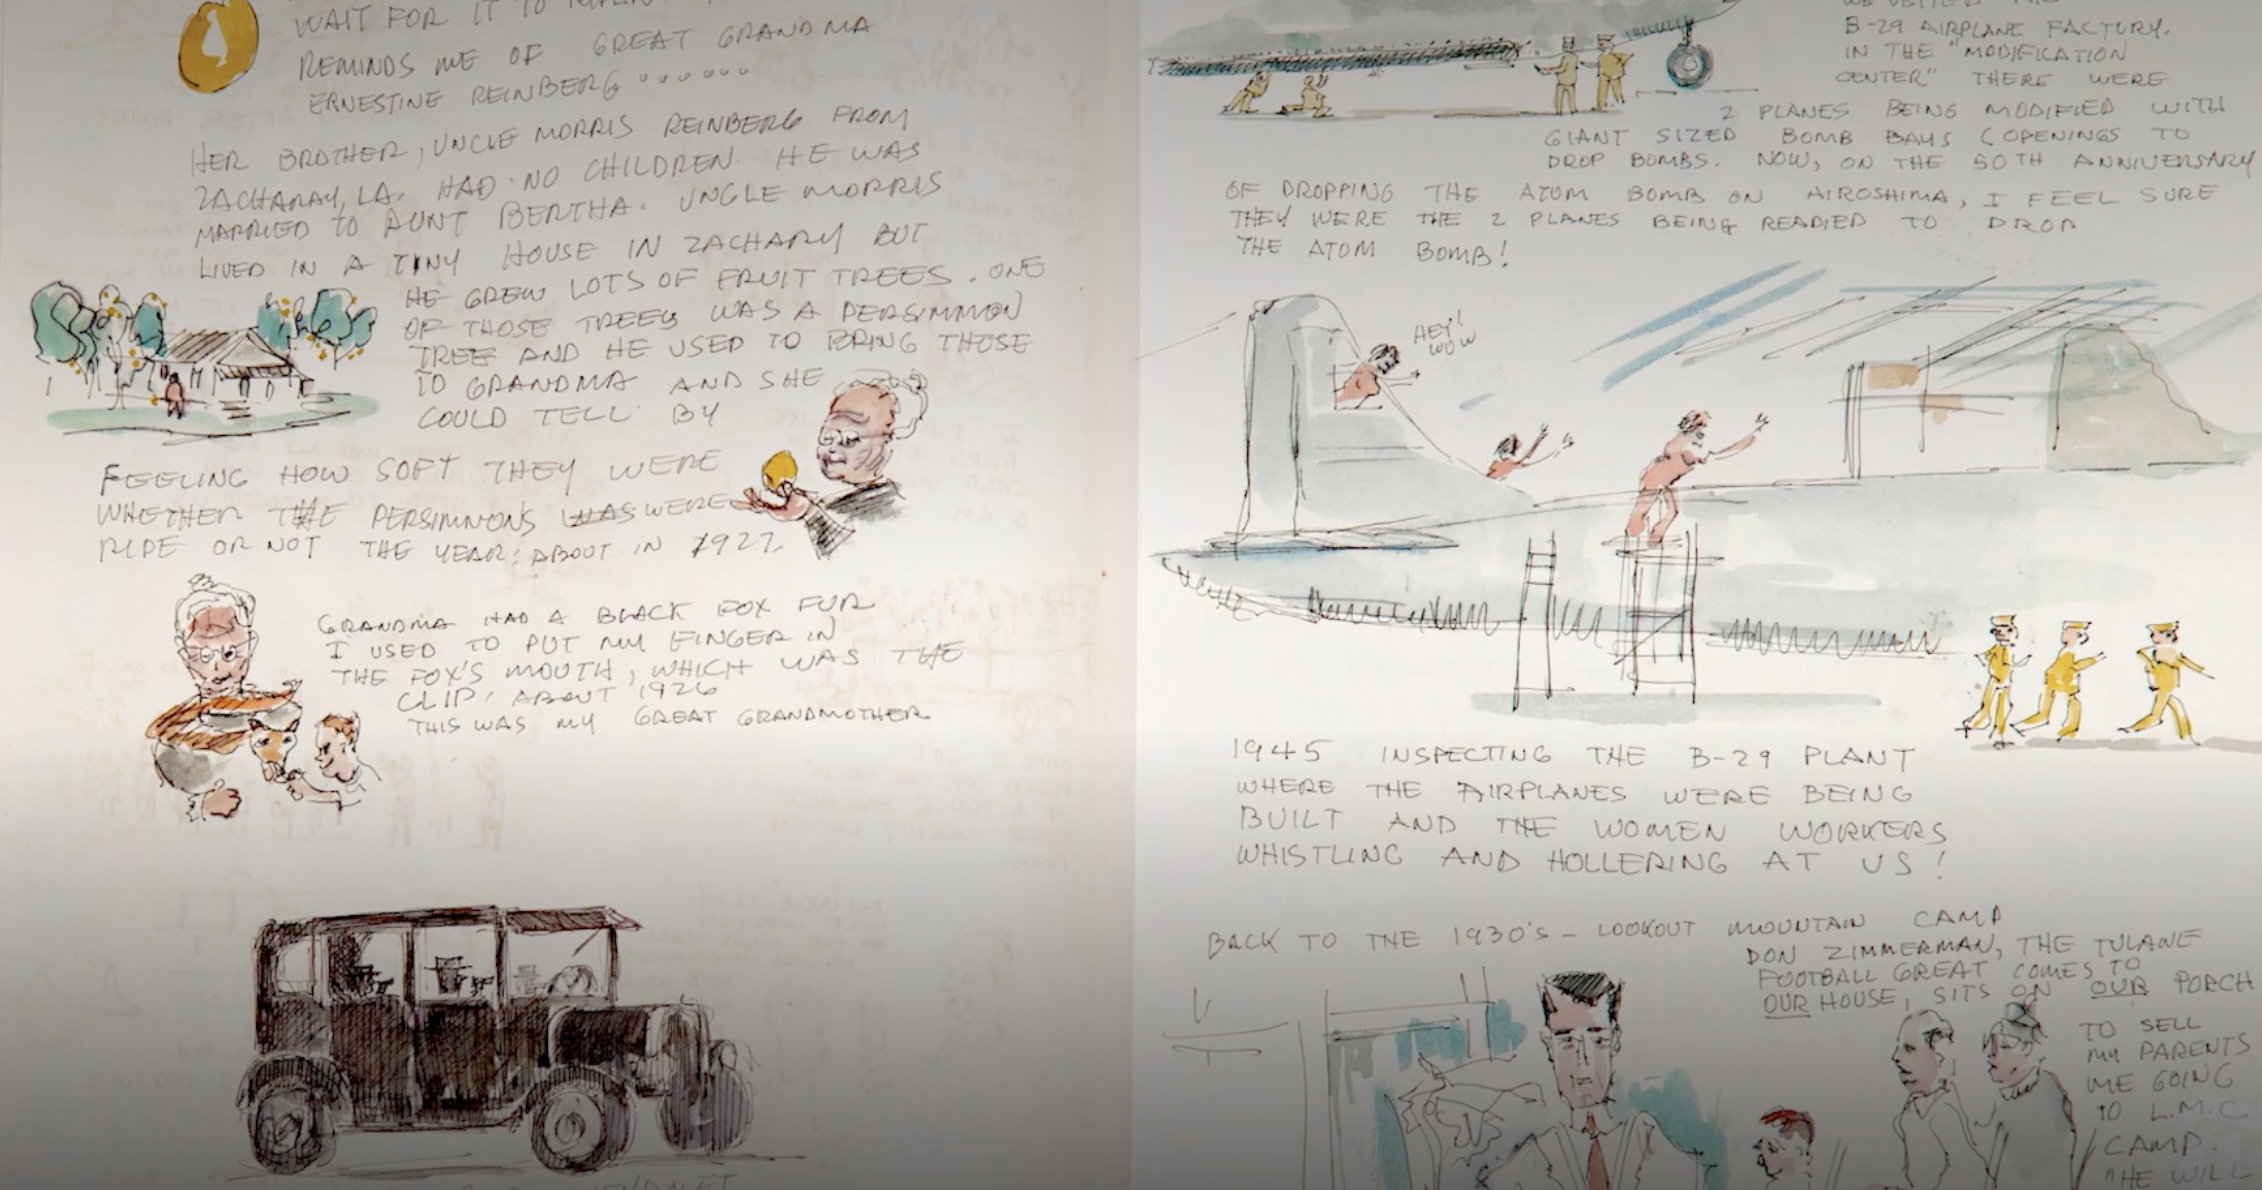 WAIT FOR IT TO
REMINDS ME OF GREAT GRANDMA
ERNESTINE REINBERG
HER BROTHER, UNCLE MORRIS REINBERG FROM
ZACHARAY, LA. HAD NO CHILDREN. HE WAS
MARRIED TO AUNT BERTHA. UNCLE MORRIS
LIVED IN A TINY HOUSE IN ZACHARY BUT
HE GREW LOTS OF FRUIT TREES. ONE
OF THOSE TREES WAS A PERSIMMON
TREE AND HE USED TO BRING THOSE
TO GRANDMA AND SHE
COULD TELL BY
FEELING HOW SOFT THEY WERE
WHETHER THE PERSIMMONS WAS WERE
RIPE OR NOT THE YEAR: ABOUT IN 1927.
GRANDMA HAD A BLACK FOX FUR
I USED TO PUT MY FINGER IN
THE FOX'S MOUTH, WHICH WAS THE
CLIP, ABOUT 1926
THIS WAS MY GREAT GRANDMOTHER
WE VISITED THE
B-29 AIRPLANE FACTORY.
IN THE "MODIFICATION
CENTER" THERE WERE
2 PLANES BEING MODIFIED WITH
GIANT SIZED BOMB BAYS (OPENINGS TO
DROP BOMBS. NOW, ON THE 50TH ANNIVERSARY
OF DROPPING THE ATOM BOMB ON HIROSHIMA, I FEEL SURE
THEY WERE THE 2 PLANES BEING READIED TO DROP
THE ATOM BOMB!
HEY!
WOW
1945 INSPECTING THE B-29 PLANT
WHERE THE AIRPLANES WERE BEING
BUILT AND THE WOMEN WORKERS
WHISTLING AND HOLLERING AT US!
BACK TO THE 1930'S - LOOKOUT MOUNTAIN CAMP
DON ZIMMERMAN, THE TULANE
FOOTBALL GREAT COMES TO
OUR HOUSE, SITS ON OUR PORCH
TO SELL
MY PARENTS
ME GOING
TO L.M.C
CAMP.
"HE WILL